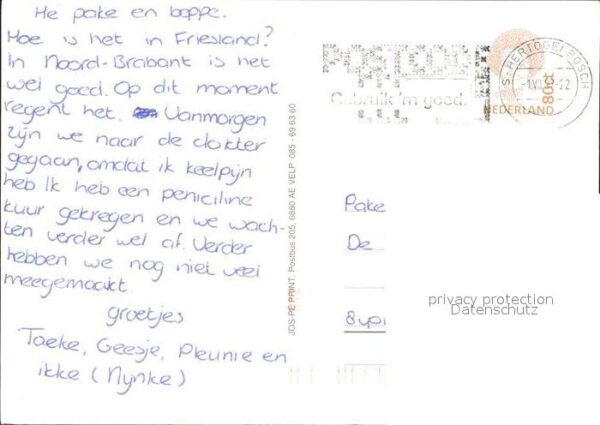 Hé pake en boppe.
Hoe is het in Friesland?
In Noord-Brabant is het
wel goed. Op dit moment
regent het. Vanmorgen
zijn we naar de dokter
gegaan, omdat ik keelpijn
heb Ik heb een peniciline
kuur gekregen en we wach-
ten verder wel af. Verder
hebben we nog niet veel
meegemaakt.
groetjes
Taeke, Geesje, Pleunie en
ikke (Nynke)
JOS-PÉ PRINT, Postbus 205, 6880 AE VELP 085 - 69 63 60
POSTCODE
Gebruik 'm goed.
'S-HERTOGENBOSCH
80ct
NEDERLAND
Pake
De
privacy protection
Datenschutz